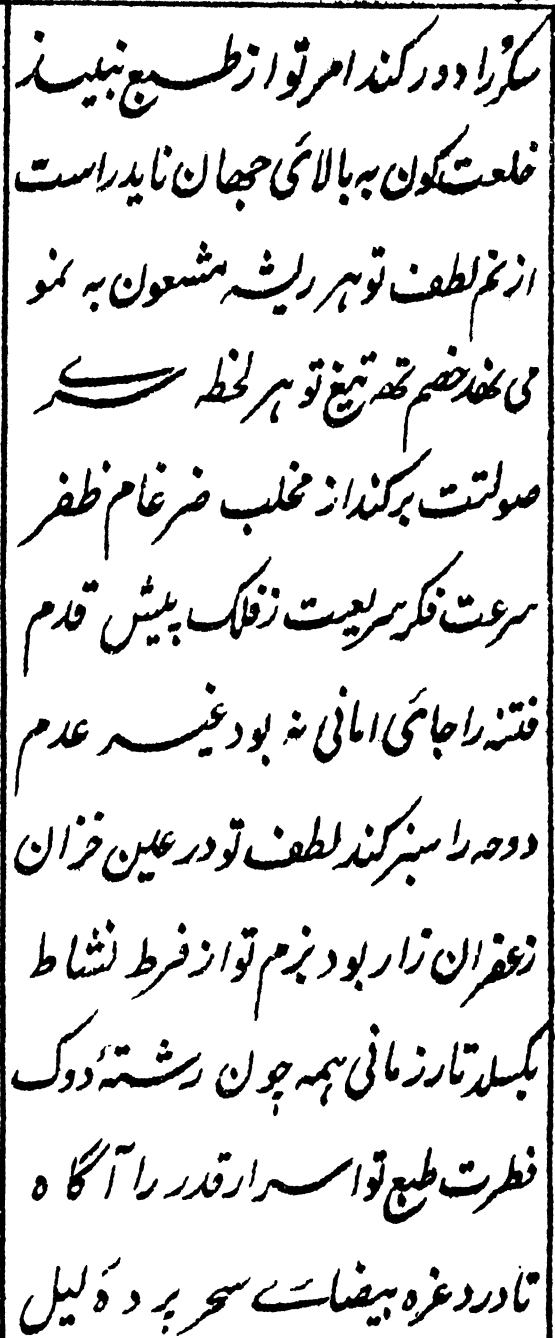 سکر را دور کند امر تو از طبع نبیذ
خلعت کون به بالائی جهان ناید راست
از نم لطف تو هر ریشه مشعون به نمو
می نهد خصم تهِ تیغ تو هر لحظه سرے
صولتت برکند از مخلب ضرغام ظفر
سرعت فکر سریعت ز فلک پیش قدم
فتنه را جائی امانی نه بود غیر عدم
دوحه را سبز کند لطف تو در عین خزان
زعفران زار بود بزم تو از فرط نشاط
بکسلد تار زمانی همه چون رشتهٔ دوک
فطرت طبع تو اسرار قدر را آگاه
تا درد غره بیضائے سحر پردهٔ لیل